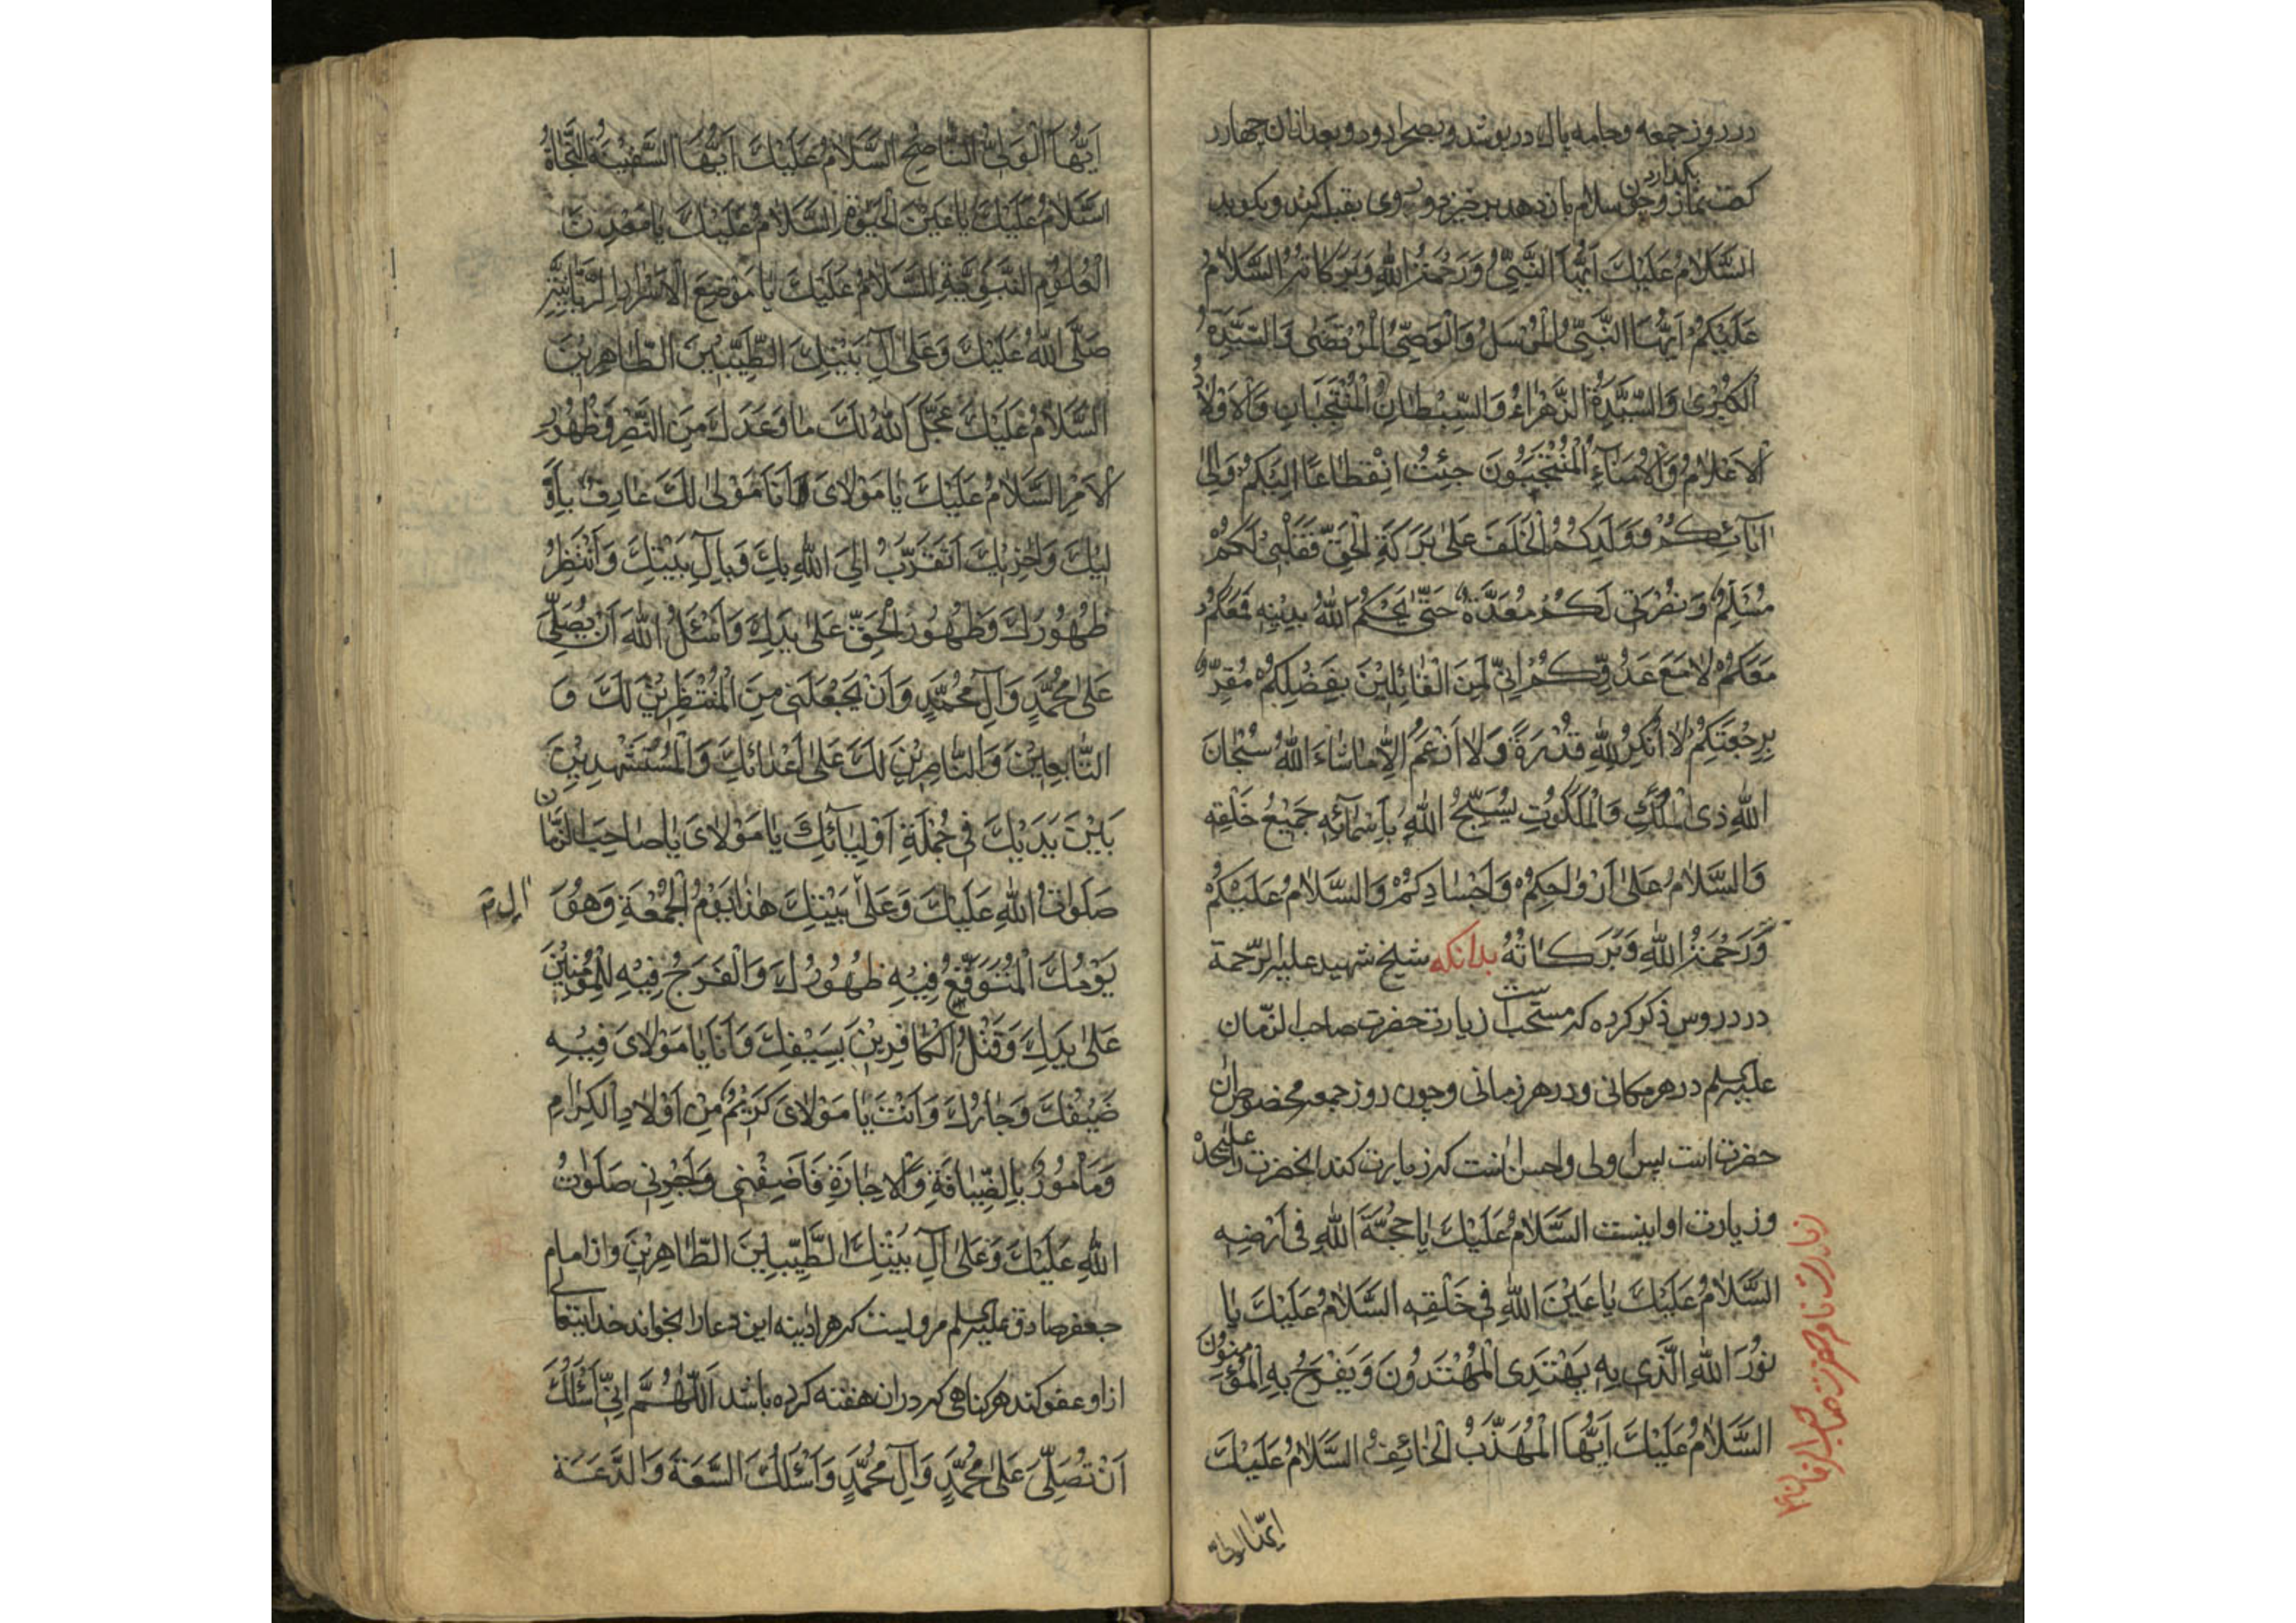 در روز جمعه و جامه پاک در پوشد و بصحرا رود و بعد از ان چهار
کعت نماز بگذارد و چون سلام باز دهد برخیزد و روی بقبله کند و بگوید
اَلسَّلَامُ عَلَيْكَ اَيُّهَا النَّبِيُّ وَرَحْمَةُ اللهِ وَبَرَكَاتُهُ السَّلَامُ
عَلَيْكُمْ اَيُّهَا النَّبِيُّ الْمُرْسَلُ وَالْوَصِيُّ الْمُرْتَضٰى وَالسَّيِّدَةُ
الْكُبْرٰى وَالسَّيِّدَةُ الزَّهْرَاءُ وَالسِّبْطَانِ الْمُنْتَجَبَانِ وَالْاَوْلَادُ
الْاَعْلَامُ وَالْاُمَنَآءُ الْمُنْتَجَبُونَ جِئْتُ انْقِطَاعًا اِلَيْكُمْ وَاِلٰى
اٰبَآئِكُمْ وَوَلَدِكُمُ الْخَلَفِ عَلٰى بَرَكَةِ الْحَقِّ فَقَلْبِي لَكُمْ
مُسَلِّمٌ وَنُصْرَتِي لَكُمْ مُعَدَّةٌ حَتّٰى يَحْكُمَ اللهُ بِدِينِهِ فَمَعَكُمْ
مَعَكُمْ لَا مَعَ عَدُوِّكُمْ اِنِّي لَمِنَ الْقَائِلِيْنَ بِفَضْلِكُمْ مُقِرٌّ
بِرَجْعَتِكُمْ لَا اُنْكِرُ لِلّٰهِ قُدْرَةً وَلَا اَزْعَمُ اِلَّا مَا شَاءَ اللهُ سُبْحَانَ
اللهِ ذِی الْمُلْكِ وَالْمَلَكُوتِ يُسَبِّحُ اللهَ بِاَسْمَآئِهِ جَمِيْعُ خَلْقِهِ
وَالسَّلَامُ عَلٰى اَرْوَاحِكُمْ وَاَجْسَادِكُمْ وَالسَّلَامُ عَلَيْكُمْ
وَرَحْمَةُ اللهِ وَبَرَكَاتُهُ بدانکه شیخ شهید علیه الرّحمة
در دروس ذکر کرده که مستحب است زیارت حضرت صاحب الزّمان
علیه السلم در هر مکانی و در هر زمانی و چون روز جمعه مخصوص ان
حضرت است پس اولی و احسن انست که زیارت کند انحضرت را
و زیارت او اینست السَّلَامُ عَلَيْكَ يَا حُجَّةَ اللهِ فِی اَرْضِهِ
السَّلَامُ عَلَيْكَ يَا عَيْنَ اللهِ فِی خَلْقِهِ السَّلَامُ عَلَيْكَ يَا
نُوْرَ اللهِ الَّذِی بِهِ يَهْتَدِی الْمُهْتَدُونَ وَيُفَرَّجُ بِهِ الْمُؤْمِنُونَ
السَّلَامُ عَلَيْكَ اَيُّهَا الْمُهَذَّبُ الْخَائِفُ السَّلَامُ عَلَيْكَ
ایّها الولیّ
اَيُّهَا الْوَلِیُّ النَّاصِحُ السَّلَامُ عَلَيْكَ اَيُّهَا السَّفِيْنَةُ النَّجَاةُ
السَّلَامُ عَلَيْكَ يَا عَيْنَ الْحَيٰوةِ السَّلَامُ عَلَيْكَ يَا مَعْدِنَ
الْعُلُوْمِ النَّبَوِيَّةِ السَّلَامُ عَلَيْكَ يَا مَوْضِعَ الْاَسْرَارِ الرَّبَّانِيَّةِ
صَلَّى اللهُ عَلَيْكَ وَعَلٰى اٰلِ بَيْتِكَ الطَّيِّبِيْنَ الطَّاهِرِيْنَ
السَّلَامُ عَلَيْكَ عَجَّلَ اللهُ لَكَ مَا وَعَدَكَ مِنَ النَّصْرِ وَظُهُوْرِ
الْاَمْرِ السَّلَامُ عَلَيْكَ يَا مَوْلَایَ اَنَا مَوْلٰى لَكَ عَارِفٌ بِاُوْ
لٰيكَ وَاُخْرٰيكَ اَتَقَرَّبُ اِلَى اللهِ بِكَ وَبِاٰلِ بَيْتِكَ وَاَنْتَظِرُ
ظُهُوْرَكَ وَظُهُوْرَ الْحَقِّ عَلٰى يَدِكَ وَاَسْئَلُ اللهَ اَنْ يُصَلِّیَ
عَلٰى مُحَمَّدٍ وَاٰلِ مُحَمَّدٍ وَاَنْ يَجْعَلَنِی مِنَ الْمُنْتَظِرِيْنَ لَكَ وَ
التَّابِعِيْنَ وَالنَّاصِرِيْنَ لَكَ عَلٰى اَعْدَائِكَ وَالْمُسْتَشْهَدِيْنَ
بَيْنَ يَدَيْكَ فِی جُمْلَةِ اَوْلِيَآئِكَ يَا مَوْلَایَ يَا صَاحِبَ الزَّمَانِ
صَلَوَاتُ اللهِ عَلَيْكَ وَعَلٰى اٰلِ بَيْتِكَ هٰذَا يَوْمُ الْجُمُعَةِ وَهُوَ
يَوْمُكَ الْمُتَوَقَّعُ فِيْهِ ظُهُوْرُكَ وَالْفَرَجُ فِيْهِ لِلْمُؤْمِنِيْنَ
عَلٰى يَدِكَ وَقَتْلُ الْكَافِرِيْنَ بِسَيْفِكَ وَاَنَا يَا مَوْلَایَ فِيْهِ
ضَيْفُكَ وَجَارُكَ وَاَنْتَ يَا مَوْلَایَ كَرِيْمٌ مِنْ اَوْلَادِ الْكِرَامِ
وَمَاْمُوْرٌ بِالضِّيَافَةِ وَالْاِجَارَةِ فَاَضِفْنِی وَاَجِرْنِی صَلَوَاتُ
اللهِ عَلَيْكَ وَعَلٰى اٰلِ بَيْتِكَ الطَّيِّبِيْنَ الطَّاهِرِيْنَ و از امام
جعفر صادق علیه السلم مرویست که هر ادینه این دعا را بخواند خدایتعالی
از او عفو کند هر کناهی که در ان هفته کرده باشد اَللّٰهُمَّ اِنِّی اَسْئَلُكَ
اَنْ تُصَلِّیَ عَلٰى مُحَمَّدٍ وَاٰلِ مُحَمَّدٍ وَاَسْئَلُكَ السَّعَةَ وَالدَّعَةَ